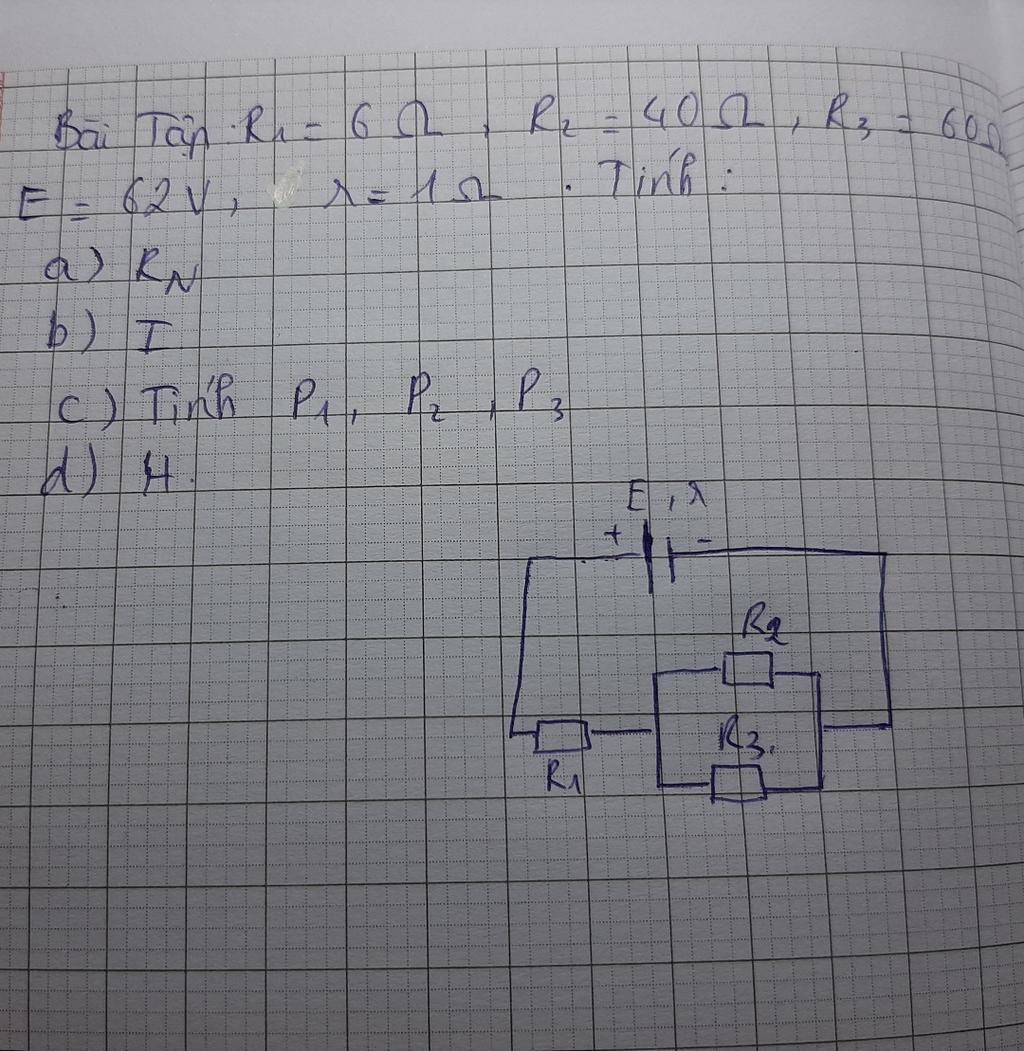 Bài Tập. R1 = 6 Ω, R2 = 40 Ω, R3 = 60Ω
E = 62V, r = 1 Ω. Tính:
a) RN
b) I
c) Tính P1, P2, P3
d) H.
E, r
+ -
R2
R3.
R1